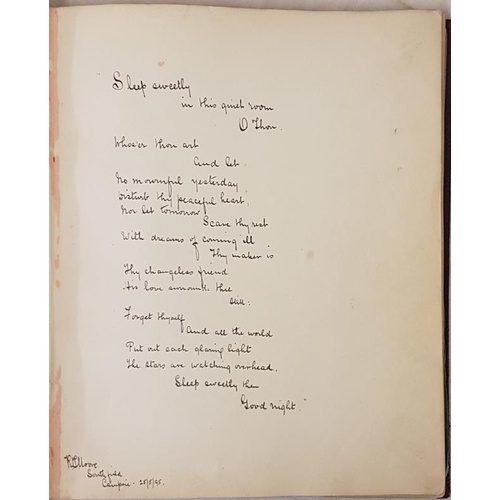 Sleep sweetly
in this quiet room
O Thou.
Whoe'er thou art
And let
No mournful yesterday
Disturb thy peaceful heart.
Nor let tomorrow
Scare thy rest
With dreams of coming ill
Thy maker is
Thy changeless friend
His love surrounds thee
still:
Forget thyself
And all the world
Put out each glaring light
The stars are watching overhead.
Sleep sweetly then
Good night.
Campsie - 25/5/95.